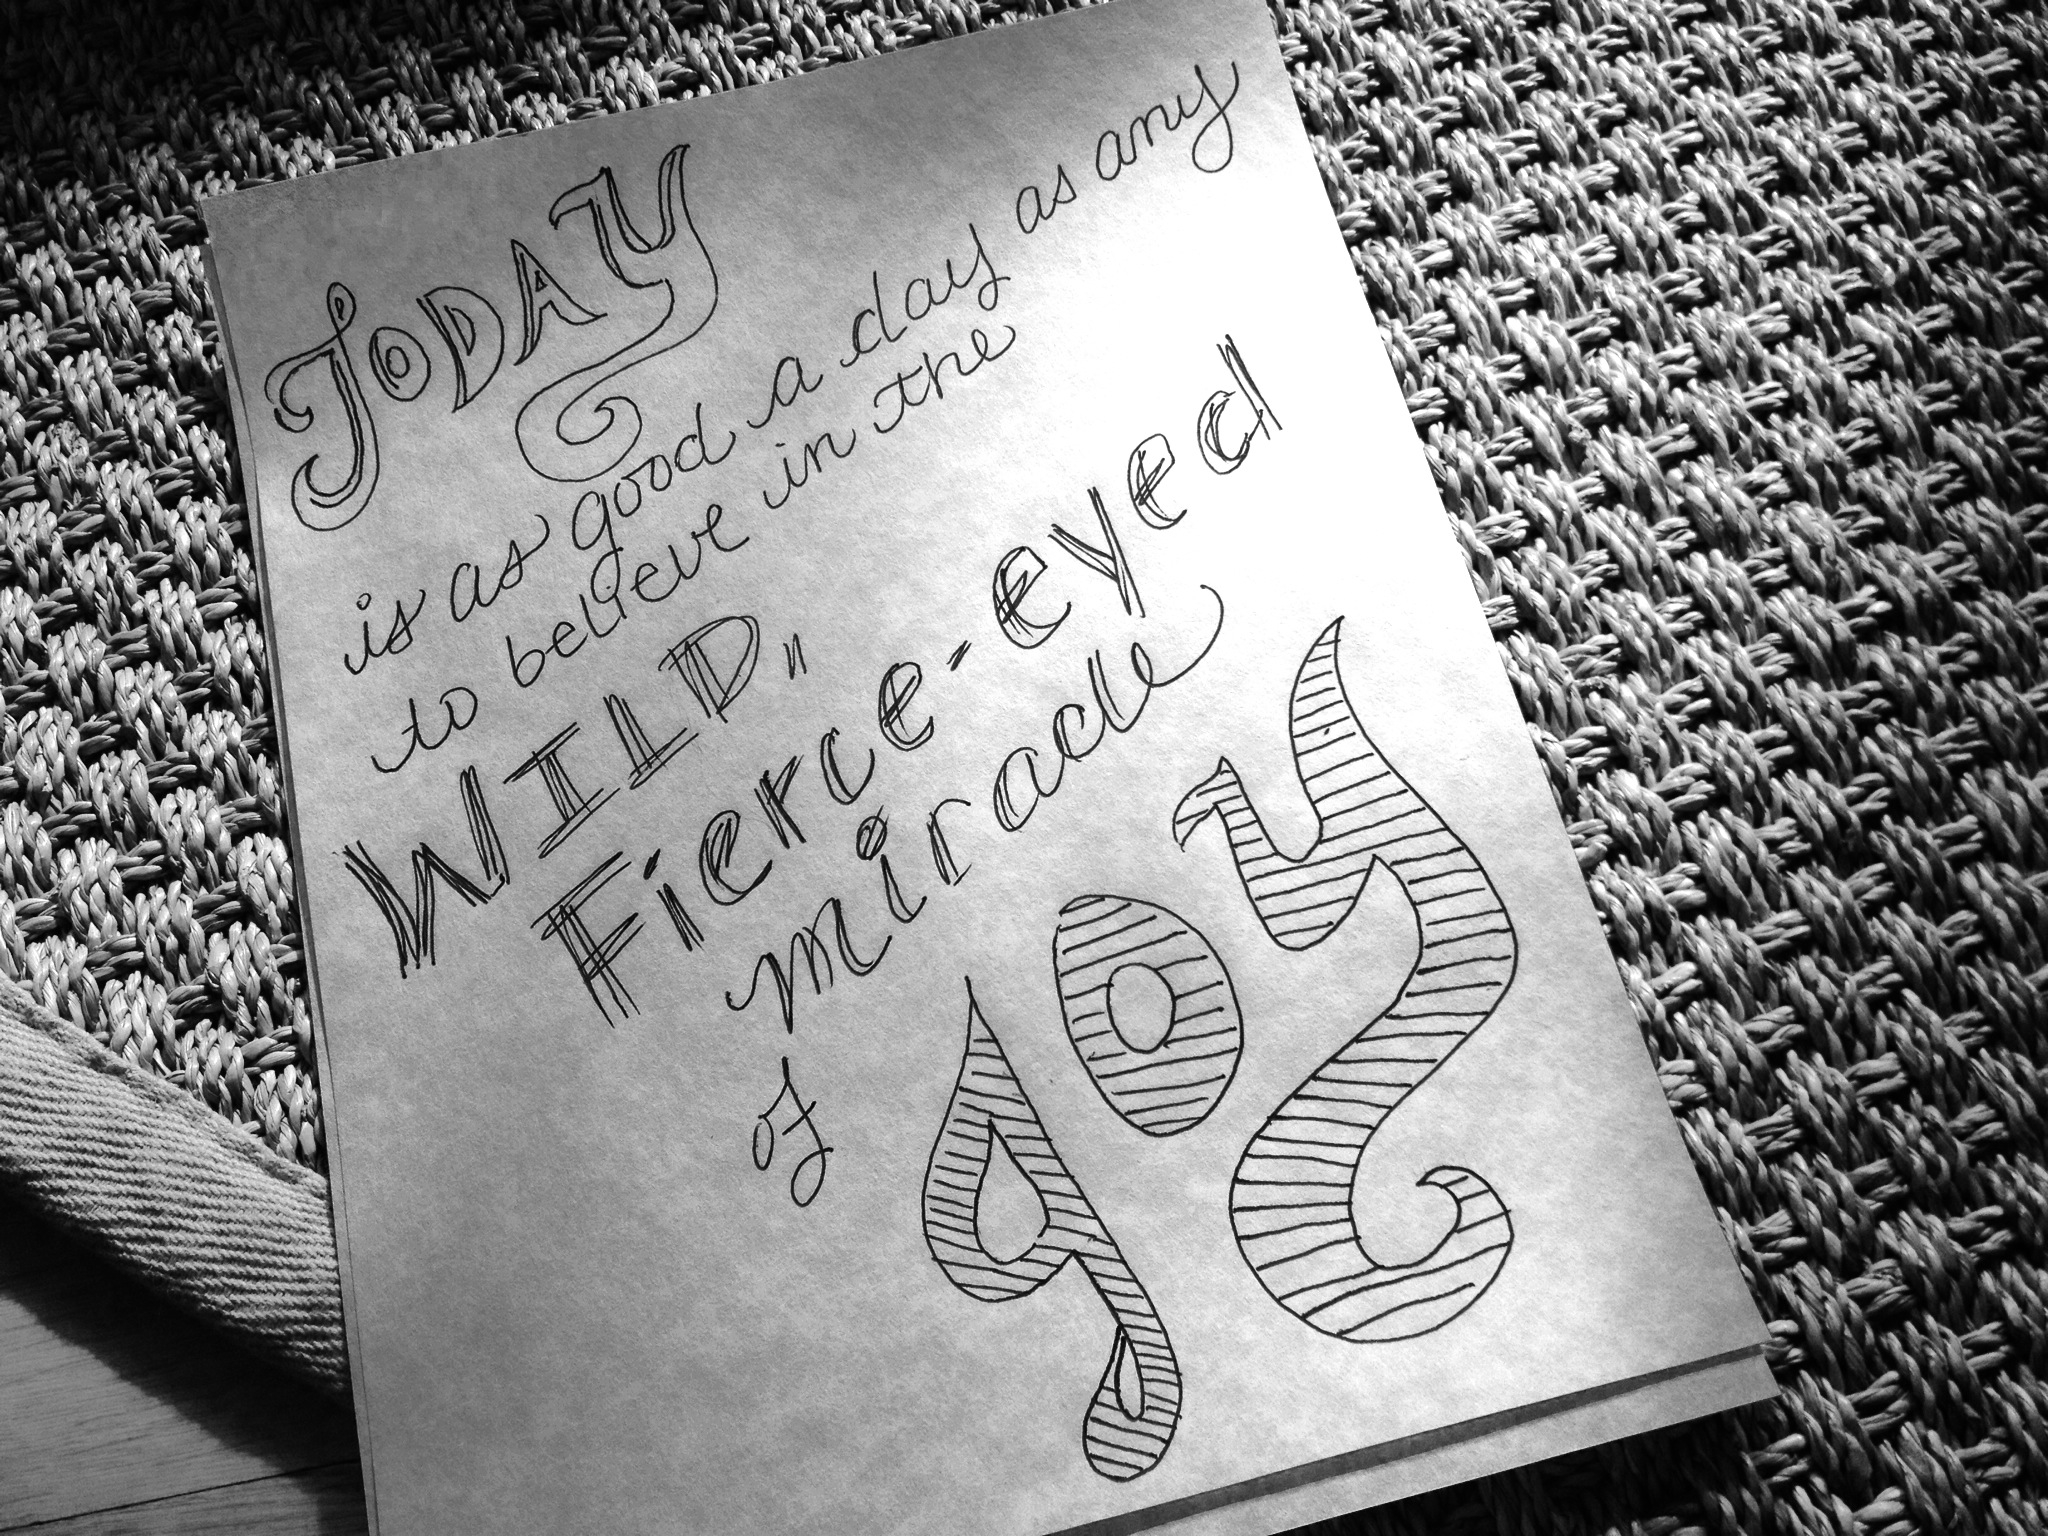 TODAY
is as good a day as any
to believe in the
WILD,
Fierce-eyed
miracle
of
JOY